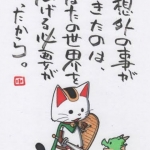 想外の事が
きたのは、
なたの世界を
げる必要が
だから。